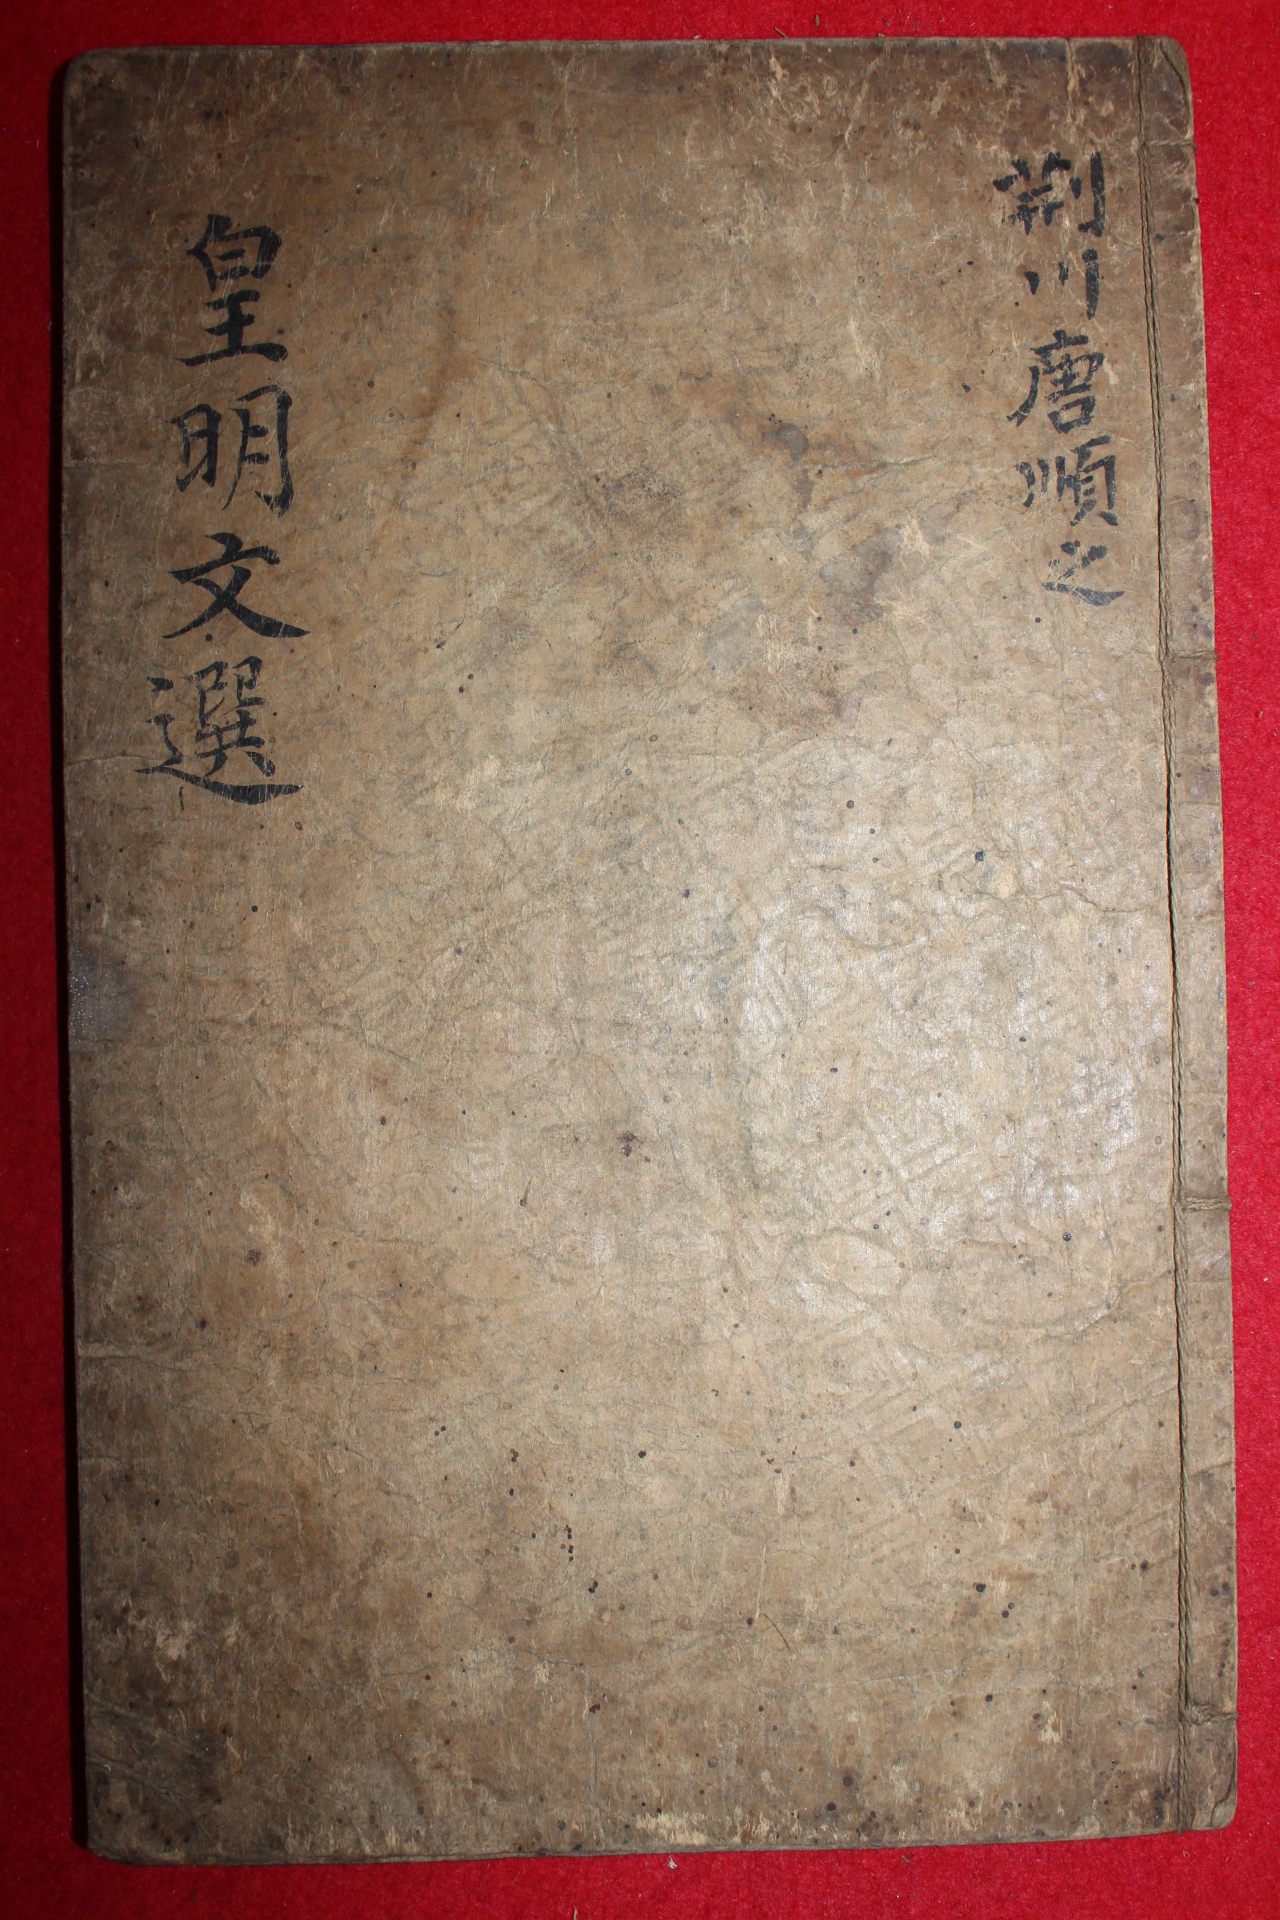 荊川唐順之
皇明文選